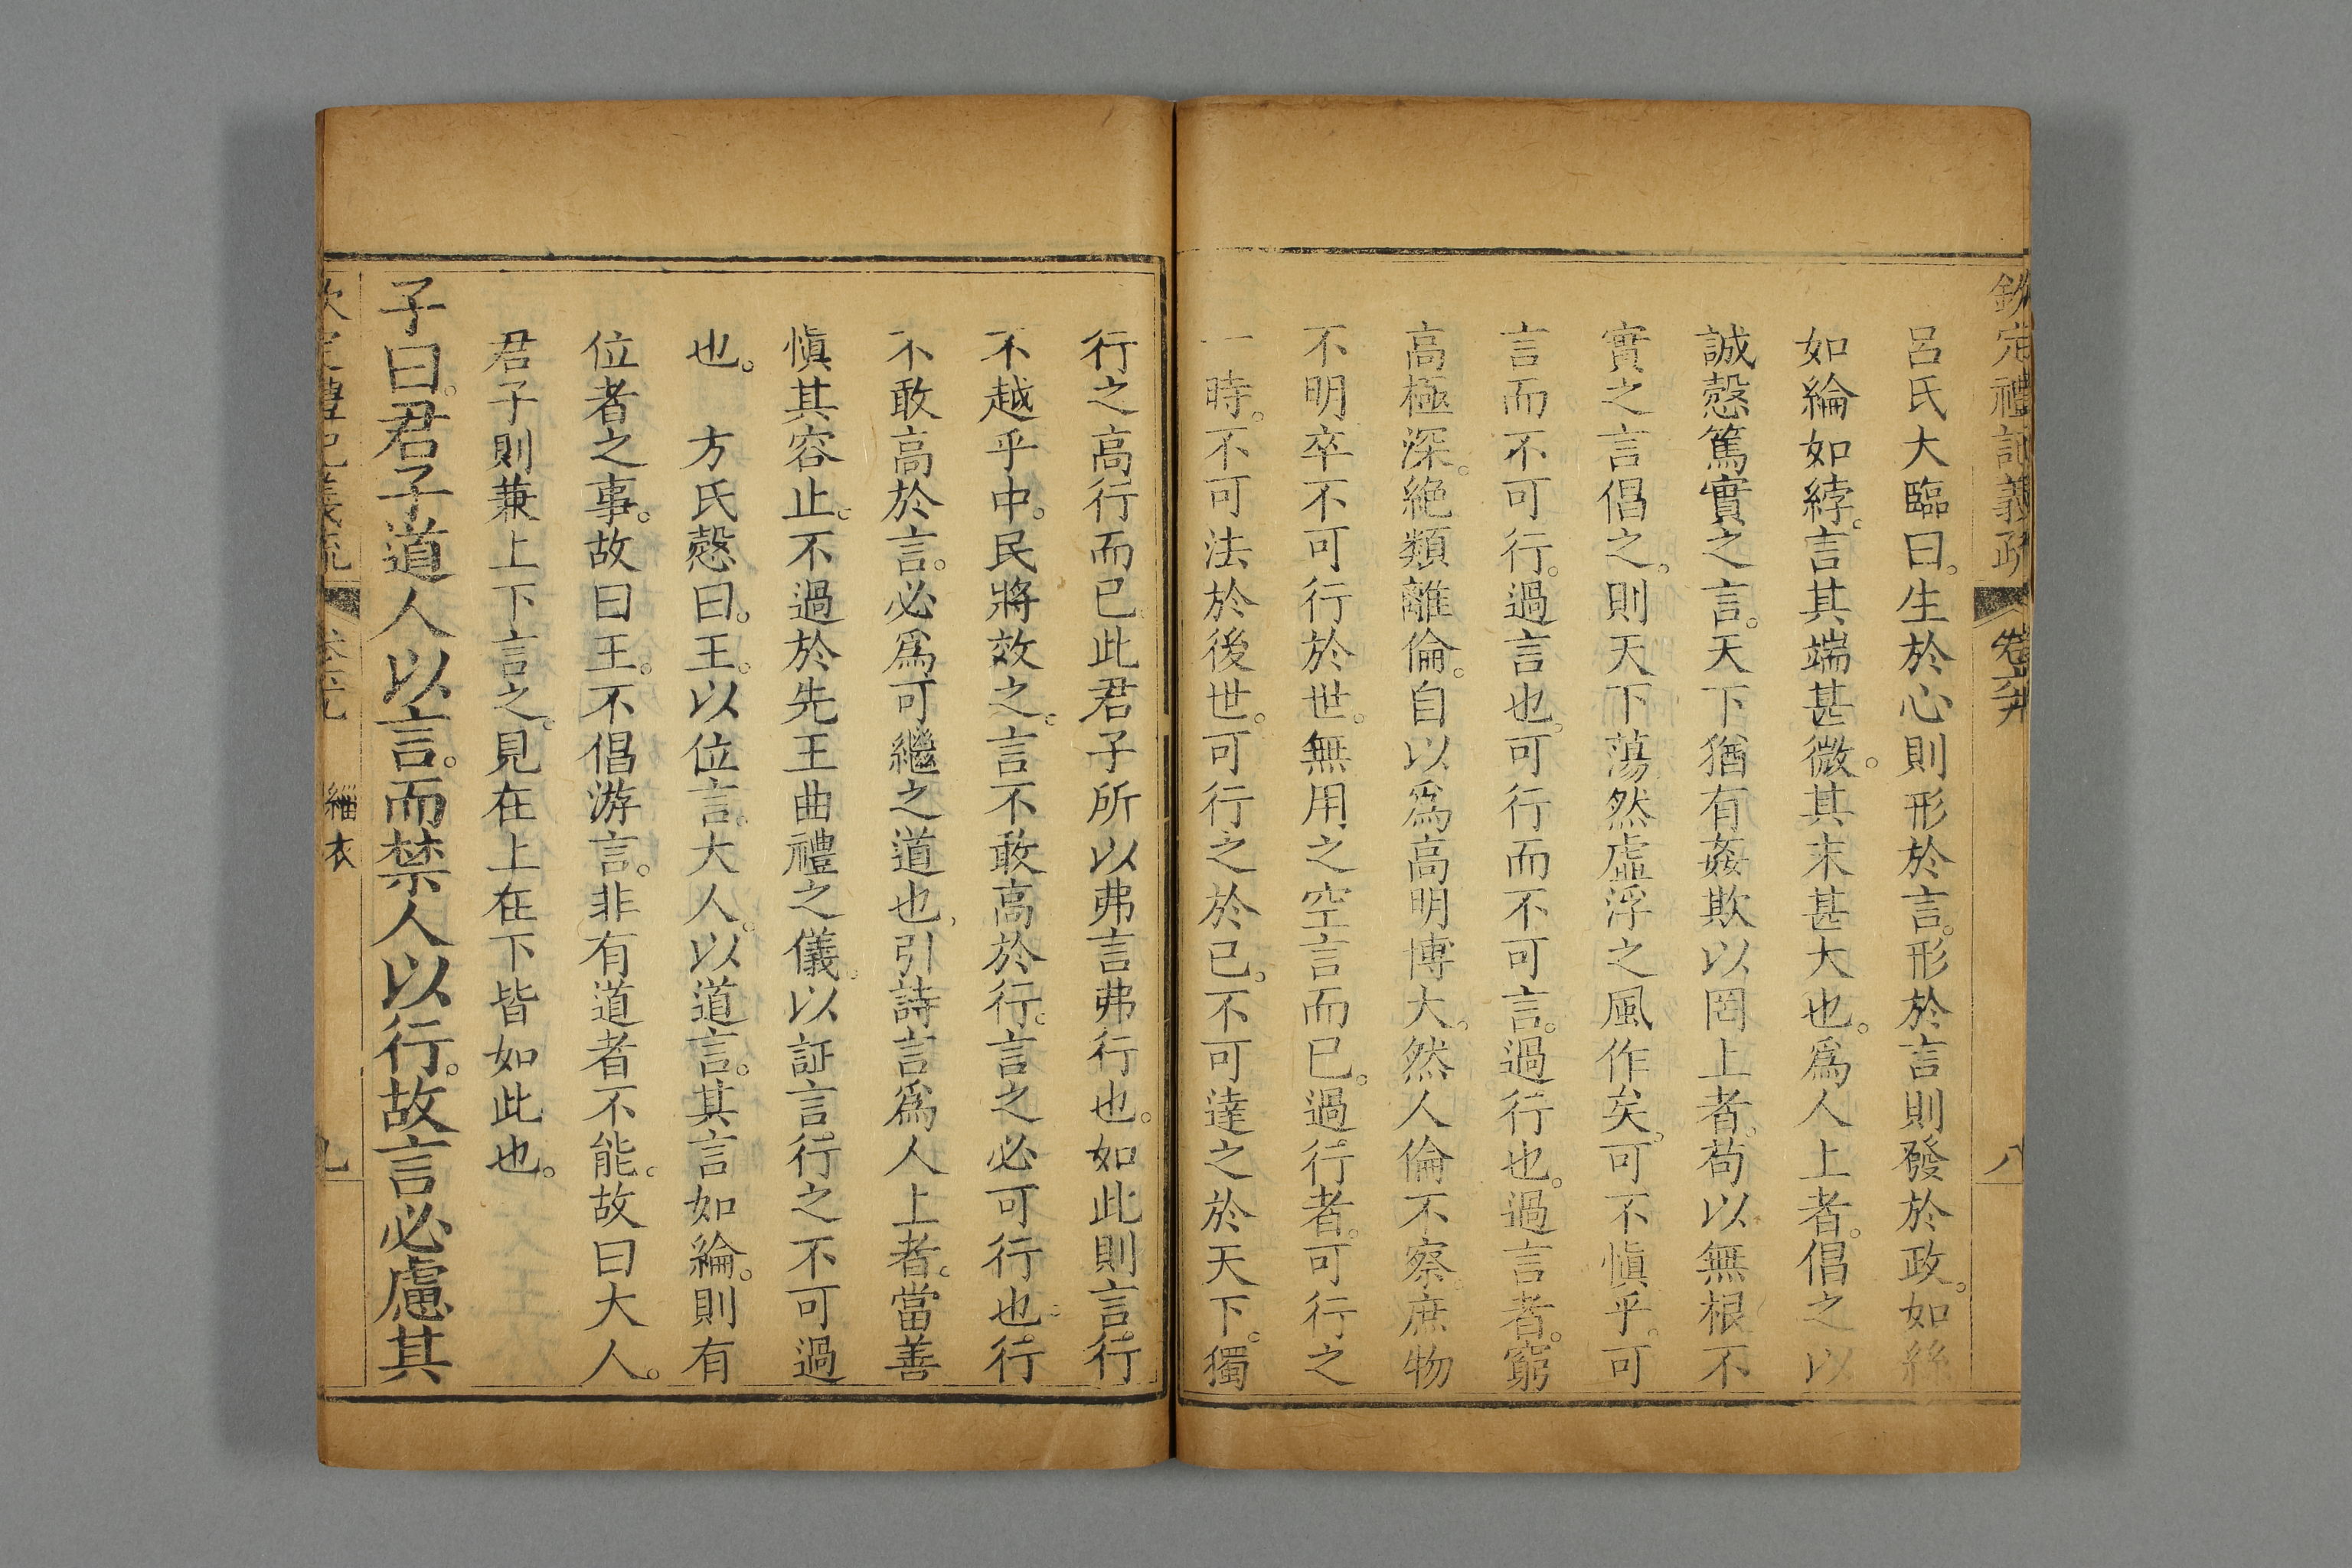 欽定禮記義疏 卷六十九 八
呂氏大臨曰。生於心則形於言。形於言則發於政。如絲
如綸如綍。言其端甚微。其末甚大也。爲人上者。倡之以
誠慤篤實之言。天下猶有姦欺以罔上者。苟以無根不
實之言倡之。則天下蕩然虛浮之風作矣。可不愼乎。可
言而不可行。過言也。可行而不可言。過行也。過言者。窮
高極深。絶類離倫。自以爲高明博大。然人倫不察。庶物
不明卒不可行於世。無用之空言而已。過行者。可行之
一時。不可法於後世。可行之於已。不可達之於天下。獨
行之高行而已此君子所以弗言弗行也。如此則言行
不越乎中。民將效之。言不敢高於行。言之必可行也。行
不敢高於言。必爲可繼之道也。引詩言爲人上者。當善
愼其容止。不過於先王曲禮之儀。以証言。行之不可過
也。　方氏慤曰。王。以位言。大人。以道言。其言如綸。則有
位者之事。故曰王。不倡游言。非有道者不能。故曰大人。
君子則兼上下言之。見在上在下皆如此也。
子曰。君子道人以言。而禁人以行。故言必慮其
欽定禮記義疏 緇衣 九